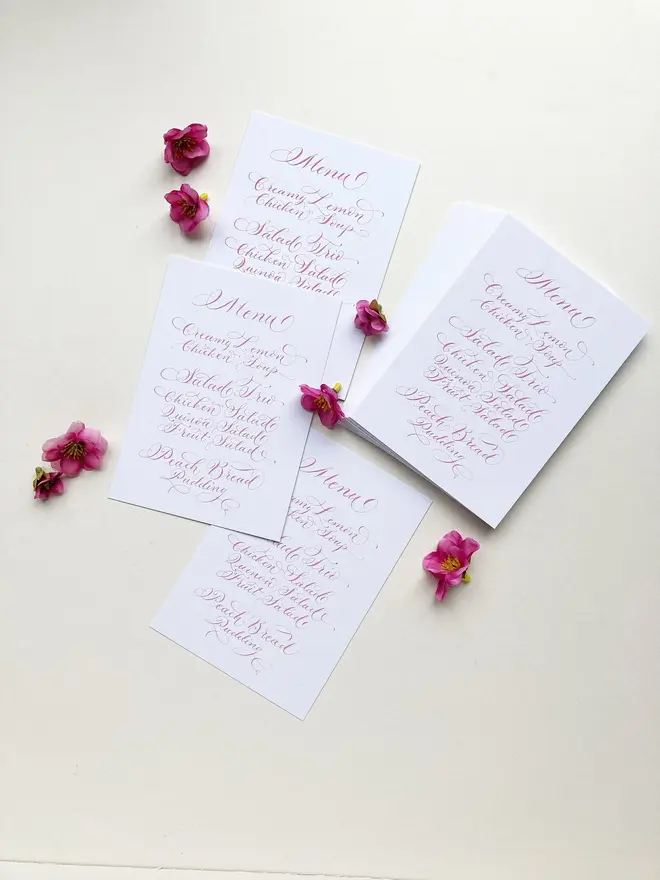 Menu
Creamy Lemon
Chicken Soup
Salade Trio
Chicken Salade
Quinoa Salade
Menu
Creamy Lemon
Chicken Soup
Salade Trio
Chicken Salade
Quinoa Salade
Fruit Salade
Peach Bread
Pudding
Menu
Creamy Lemon
Chicken Soup
Salade Trio
Chicken Salade
Quinoa Salade
Fruit Salade
Peach Bread
Pudding
Menu
eamy Lemon
Soup
alade Trio
Chicken Salade
Quinoa Salade
Fruit Salade
Peach Bread
Pudding